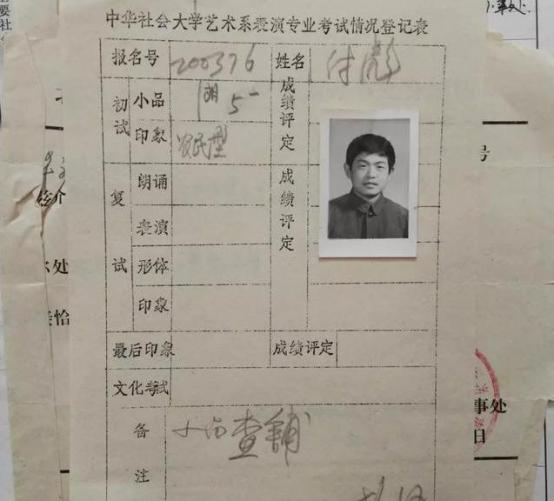 中华社会大学艺术系表演专业考试情况登记表
报名号 200376 姓名 付彪
初试 小品 5- 成绩评定
印象 农民型
复试 朗诵 成绩评定
表演
形体
印象
最后印象 成绩评定
文化考试
备注 小品查铺
号
处
事处
日